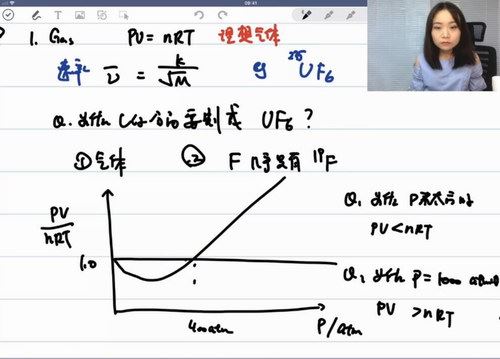 09:41
1. Gas PV = nRT 理想气体
速率 ῡ = k/√M eg ²³⁵UF₆
Q. 为什么 U 分离要制成 UF₆ ?
① 气体 ② F 只有 ¹⁹F
PV/nRT
1.0
400 atm P/atm
Q. 为什么 P 不太大时
PV < nRT
Q. 为什么 P = 1000 atm
PV > nRT